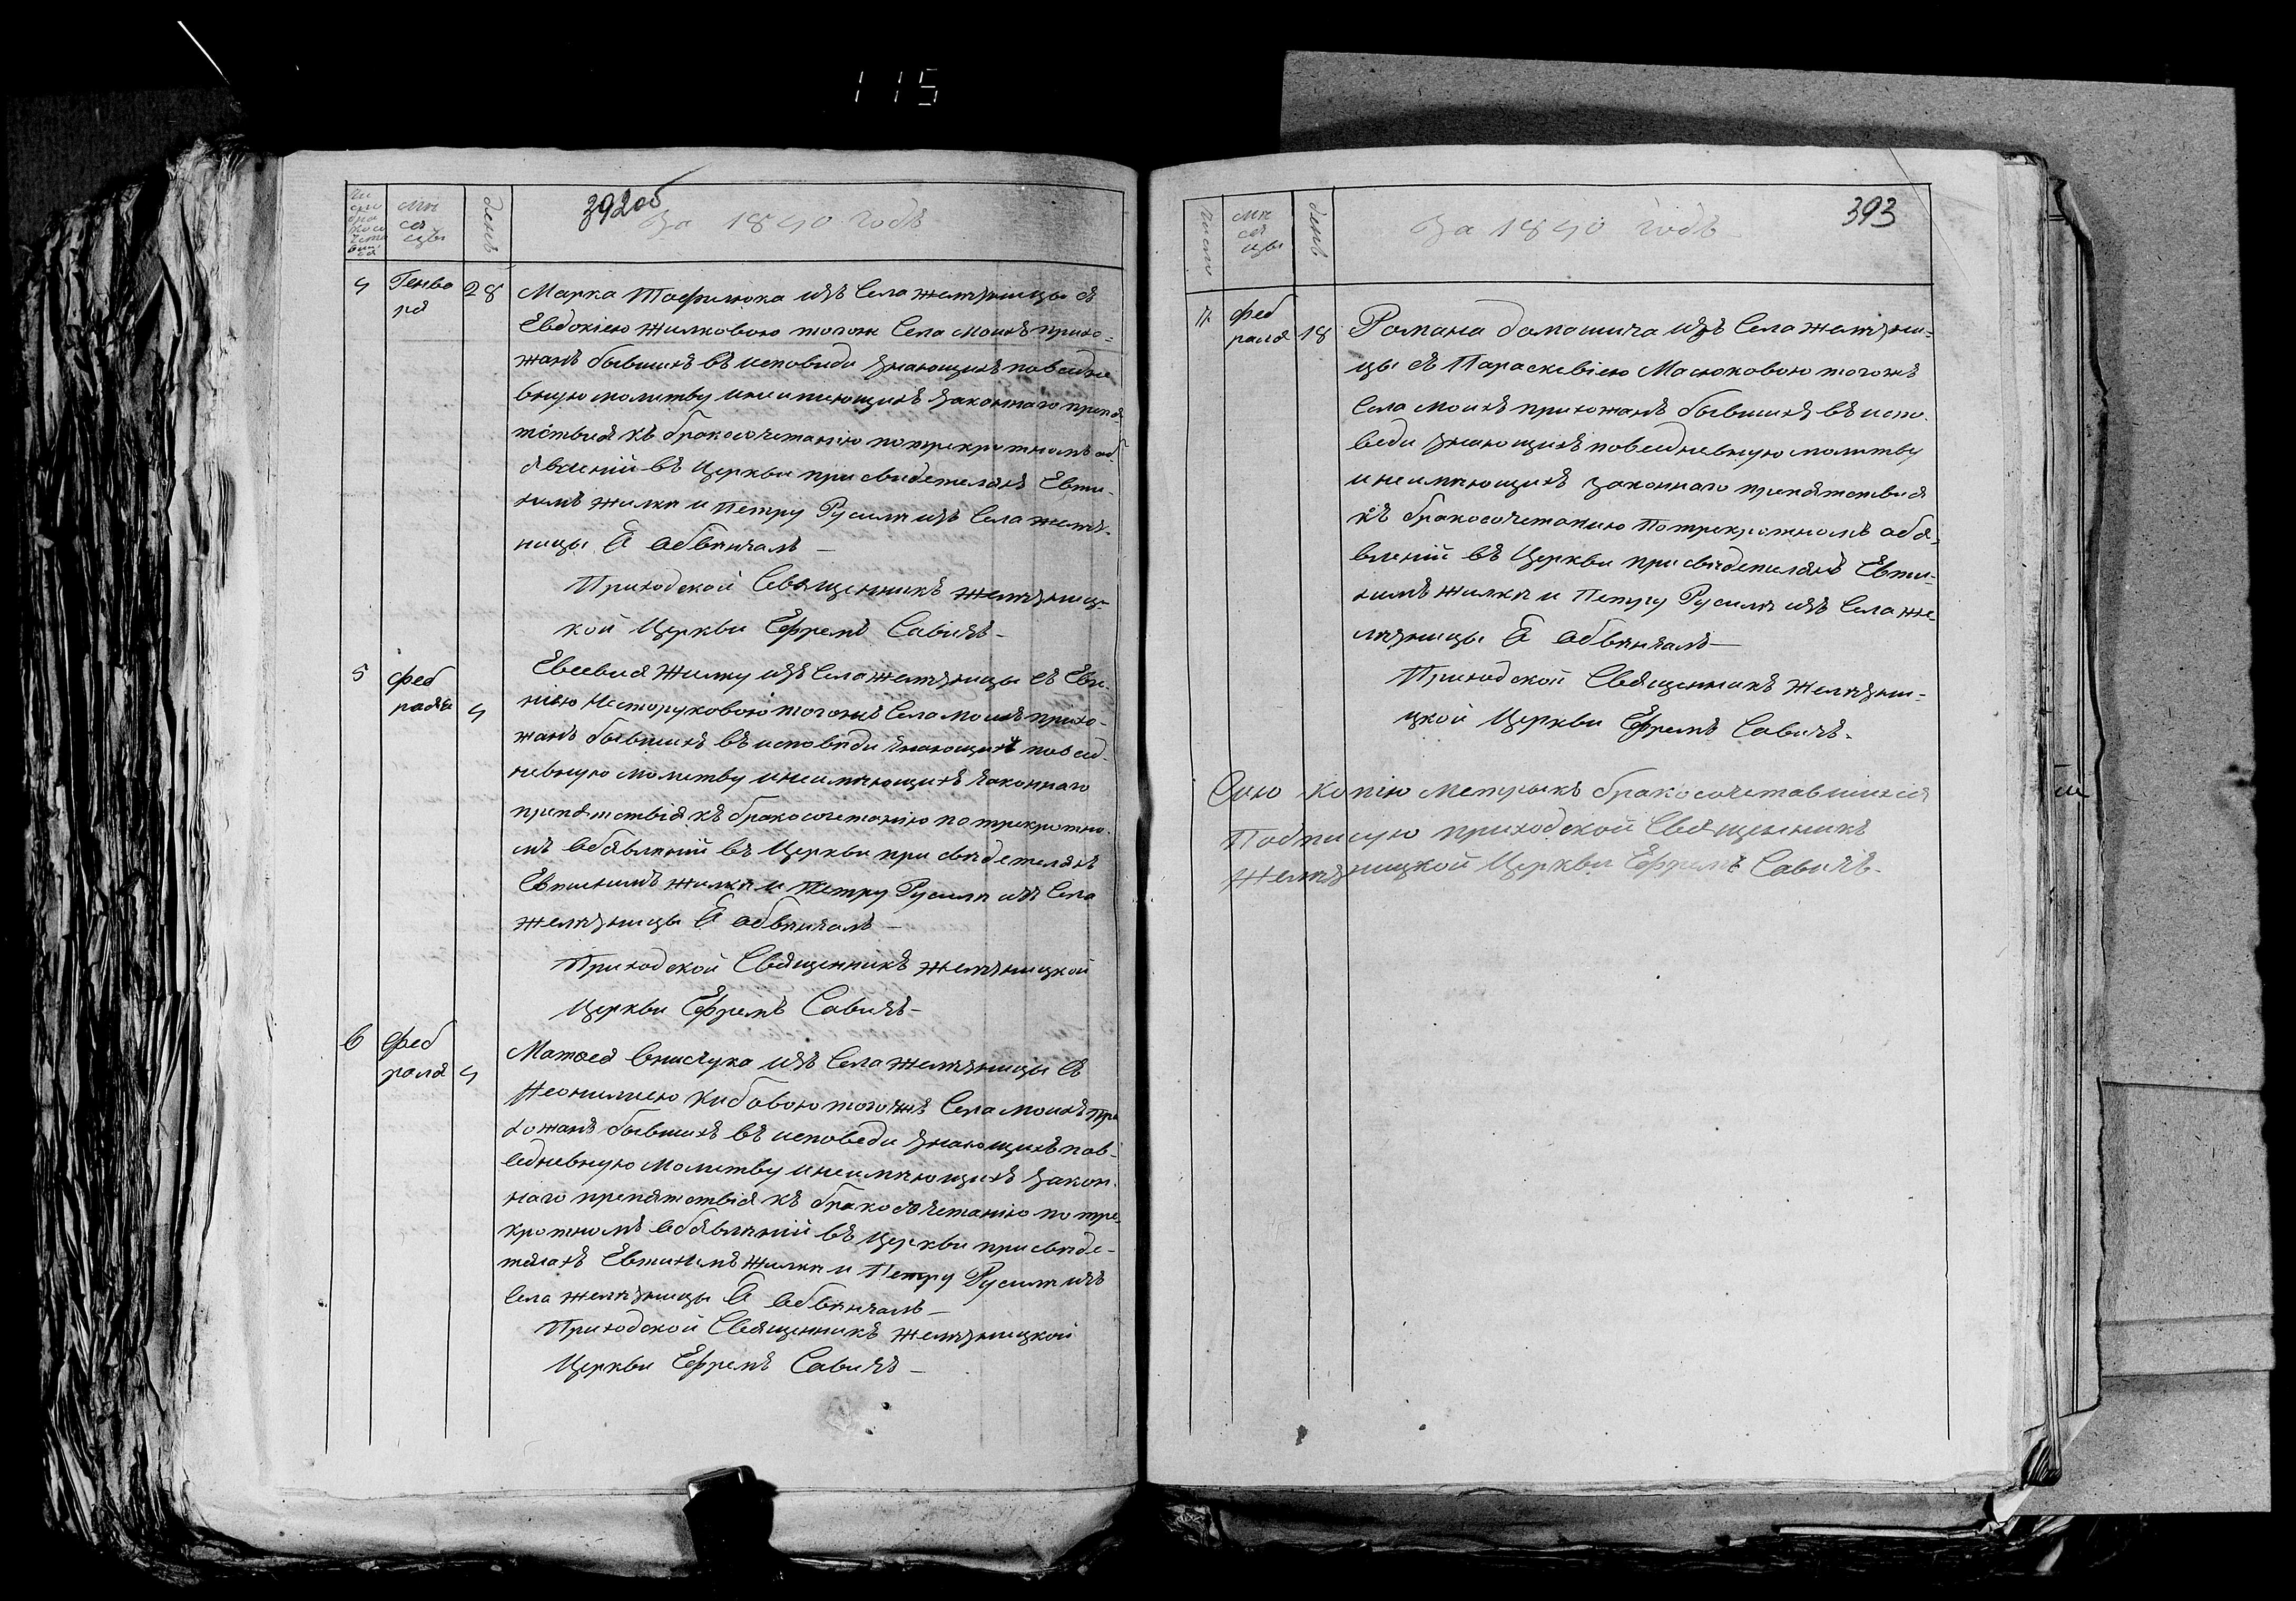 115
392об
За 1840 годъ
Число бракосочетавшихся
мѣсяцы
день
4 Генваря 28
Марка Тофилюка изъ Села Желѣзницы съ
Евдокіею Жилковою тогож Села моихъ прихо-
жанъ бывшихъ въ исповѣди знающихъ повседне
вную молитву и неимеющихъ законнаго препя
тствія къ бракосочетанію по трекротномъ об
явленій въ Церкви при свидетеляхъ Евти-
химъ Жилкѣ и Петру Русилѣ изъ Села Желѣз-
ницы Я обвѣнчалъ —
Приходской Священникъ Желѣзниц-
кой Церкви Ефремъ Савичъ —
5 февраля 4
Евсевия Жилку изъ Села Желѣзницы съ Евге-
ніею Несторуковою тогожъ Села моихъ прихо-
жанъ бывшихъ въ исповѣди знающихъ повсед-
невную молитву и неимѣющихъ законнаго
препятствія къ бракосочетанію по трекротно-
мъ обявлѣній въ Церкви при свѣдетеляхъ
Евтихимъ Жилкѣ и Петру Русилѣ изъ Села
Желѣзницы Я обвѣнчалъ —
Приходской Священникъ Желѣзницкой
Церкви Ефремъ Савичъ —
6 февраля 4
Матвея изъ Села Желѣзницы съ
Неонилиею Кибовою тогожъ Села моихъ При
хожанъ бывшихъ въ исповеди знающихъ пов-
седневную Молитву и неимѣющихъ закон-
наго препятствія къ бракосочетанію по тре-
кротномъ обявлѣній въ Церкви при свѣде-
телахъ Евтихимъ Жилкѣ и Петру Русилѣ изъ
Села Желѣзницы Я обвѣнчалъ —
Приходской Священникъ Желѣзницкой
Церкви Ефремъ Савичъ —
393
За 1840 годъ
число
мѣсяцы
день
7. февраля 18
Романа Домашича изъ Села Желѣзни-
цы съ Параскевіею Масюковою тогожъ
Села моихъ прихожанъ бывшихъ въ испо-
веди знающихъ повседневную молитву
и неимѣющихъ законнаго препятствия
къ бракосочетанию По трекротномъ обя-
вленій въ Церкви при свѣдетеляхъ Евти-
химъ Жилкѣ и Петру Русилѣ изъ Села Же
лѣзницы Я обвѣнчалъ —
Приходской Священникъ Желѣзни-
цкой Церкви Ефремъ Савичъ.
Сию копію Метрыкъ бракосочетавшихся
Подписую приходской Священникъ
Желѣзницкой Церкви Ефремъ Савичъ.